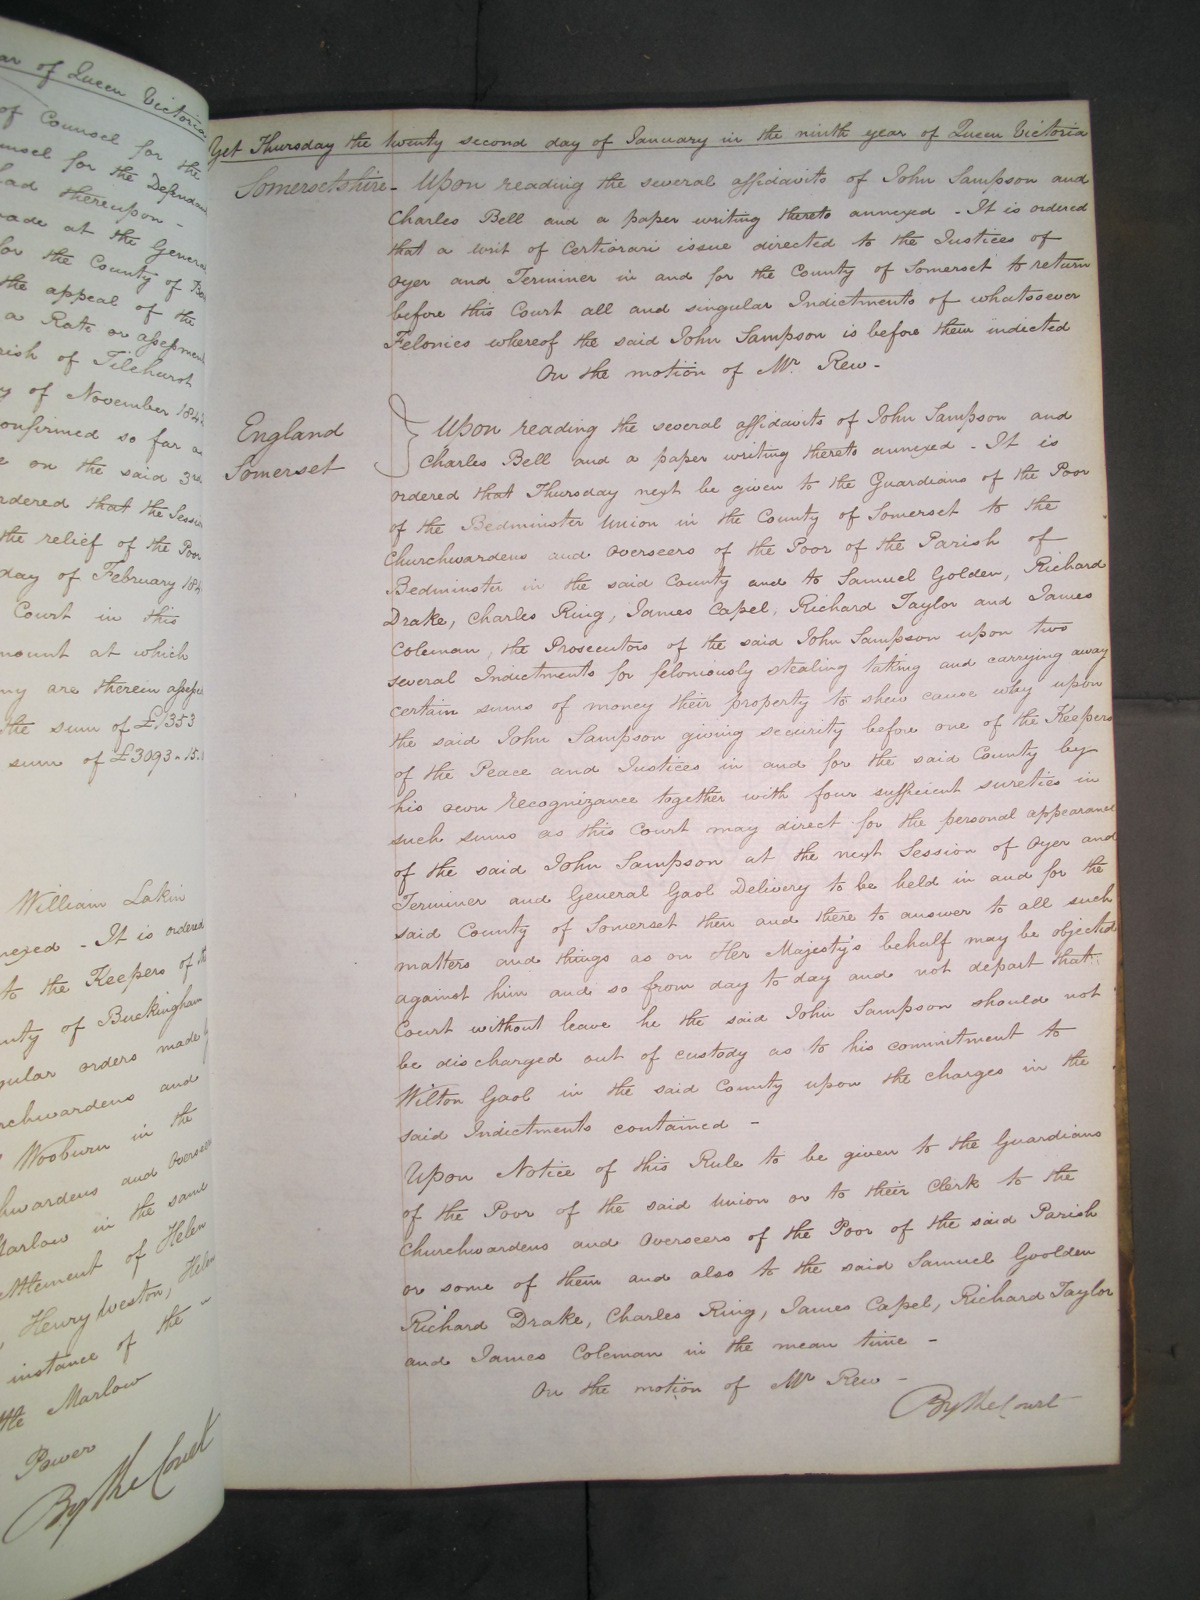 ar of Queen Victoria
of Counsel for the
unsel for the Defendan
had thereupon -
made at the General
for the County of Be
the appeal of the
a Rate or assessment
rish of Tilehurst
y of November 184
onfirmed so far a
e on the said 3rd
rdered that the Sessi
the relief of the Poor
day of February 184
Court in this
mount at which
ny are therein assess
the sum of £1353
sum of £3093 " 15
William Lakin
nexed - It is ordered
to the Keepers of the
unty of Buckingham
gular orders made
rchwardens and
Wooburn in the
hwardens and Overseer
Marlow in the same
ettlement of Helen
Henry Weston, Helen
instance of the
Marlow
Power
By the Court
Yet Thursday the twenty second day of January in the ninth year of Queen Victoria
Somersetshire - Upon reading the several affidavits of John Sampson and
Charles Bell and a paper writing thereto annexed - It is ordered
that a writ of Certiorari issue directed to the Justices of
Oyer and Terminer in and for the County of Somerset to return
before this Court all and singular Indictments of whatsoever
Felonies whereof the said John Sampson is before them indicted
On the motion of Mr. Rew -
England
Somerset
Upon reading the several affidavits of John Sampson and
Charles Bell and a paper writing thereto annexed - It is
ordered that Thursday next be given to the Guardians of the Poor
of the Bedminster Union in the County of Somerset to the
Churchwardens and Overseers of the Poor of the Parish of
Bedminster in the said County and to Samuel Golden, Richard
Drake, Charles Ring, James Capel, Richard Taylor and James
Coleman, the Prosecutors of the said John Sampson upon two
several Indictments for feloniously stealing taking and carrying away
certain sums of money their property to shew cause why upon
the said John Sampson giving security before one of the Keepers
of the Peace and Justices in and for the said County by
his own recognizance together with four sufficient sureties in
such sums as this Court may direct for the personal appearance
of the said John Sampson at the next Session of Oyer and
Terminer and General Gaol Delivery to be held in and for the
said County of Somerset then and there to answer to all such
matters and things as on Her Majesty's behalf may be objected
against him and so from day to day and not depart that
Court without leave he the said John Sampson should not
be discharged out of custody as to his commitment to
Wilton Gaol in the said County upon the charges in the
said Indictments contained -
Upon Notice of this Rule to be given to the Guardians
of the Poor of the said Union or to their Clerk to the
Churchwardens and Overseers of the Poor of the said Parish
or some of them and also to the said Samuel Goolden
Richard Drake, Charles Ring, James Capel, Richard Taylor
and James Coleman in the mean time -
On the motion of Mr Rew -
By the Court